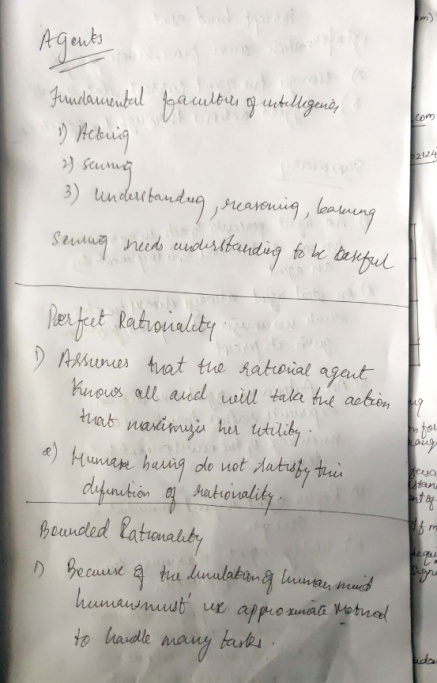 Agents
Fundamental faculties of intelligence
1) Acting
2) sensing
3) understanding, reasoning, learning
Sensing needs understanding to be useful
Perfect Rationality
1) Assumes that the rational agent
knows all and will take the action
that maximize her utility.
2) Human being do not satisfy this
definition of rationality.
Bounded Rationality
1) Because of the limitation of human mind
humans must use approximate method
to handle many tasks.
.com